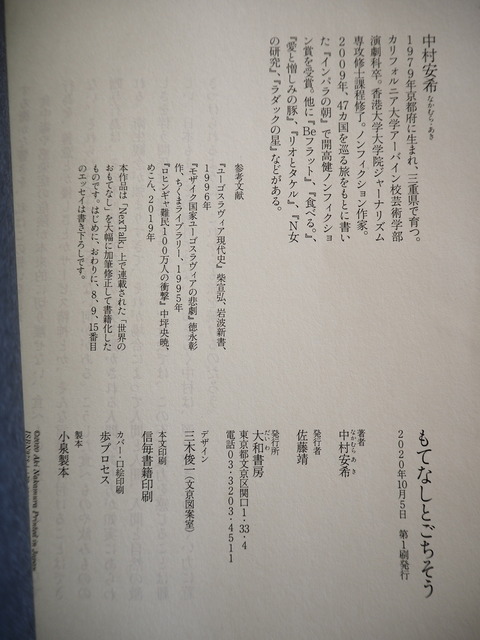 中村安希 なかむら・あき
1979年京都府に生まれ、三重県で育つ。
カリフォルニア大学アーバイン校芸術学部
演劇科卒。香港大学大学院ジャーナリズム
専攻修士課程修了。ノンフィクション作家。
2009年、47カ国を巡る旅をもとに書い
た『インパラの朝』で開高健ノンフィクショ
ン賞を受賞。他に『Beフラット』、『食べる。』、
『愛と憎しみの豚』、『リオとタケル』、『N女
の研究』、『ラダックの星』などがある。
参考文献
『ユーゴスラヴィア現代史』柴宜弘、岩波新書、
1996年
『モザイク国家ユーゴスラヴィアの悲劇』徳永彰
作、ちくまライブラリー、1995年
『ロヒンギャ難民100万人の衝撃』中坪央暁、
めこん、2019年
本作品は「NexTalk」上で連載された「世界の
おもてなし」を大幅に加筆修正して書籍化した
ものです。はじめに、おわりに、8、9、15番目
のエッセイは書き下ろしです。
もてなしとごちそう
2020年10月5日 第1刷発行
著者
中村安希 なかむらあき
発行者
佐藤靖
発行所
大和書房 だいわ
東京都文京区関口1・33・4
電話03・3203・4511
デザイン
三木俊一(文京図案室)
本文印刷
信毎書籍印刷
カバー・口絵印刷
歩プロセス
製本
小泉製本
©2020 Aki Nakamura Printed in Japan